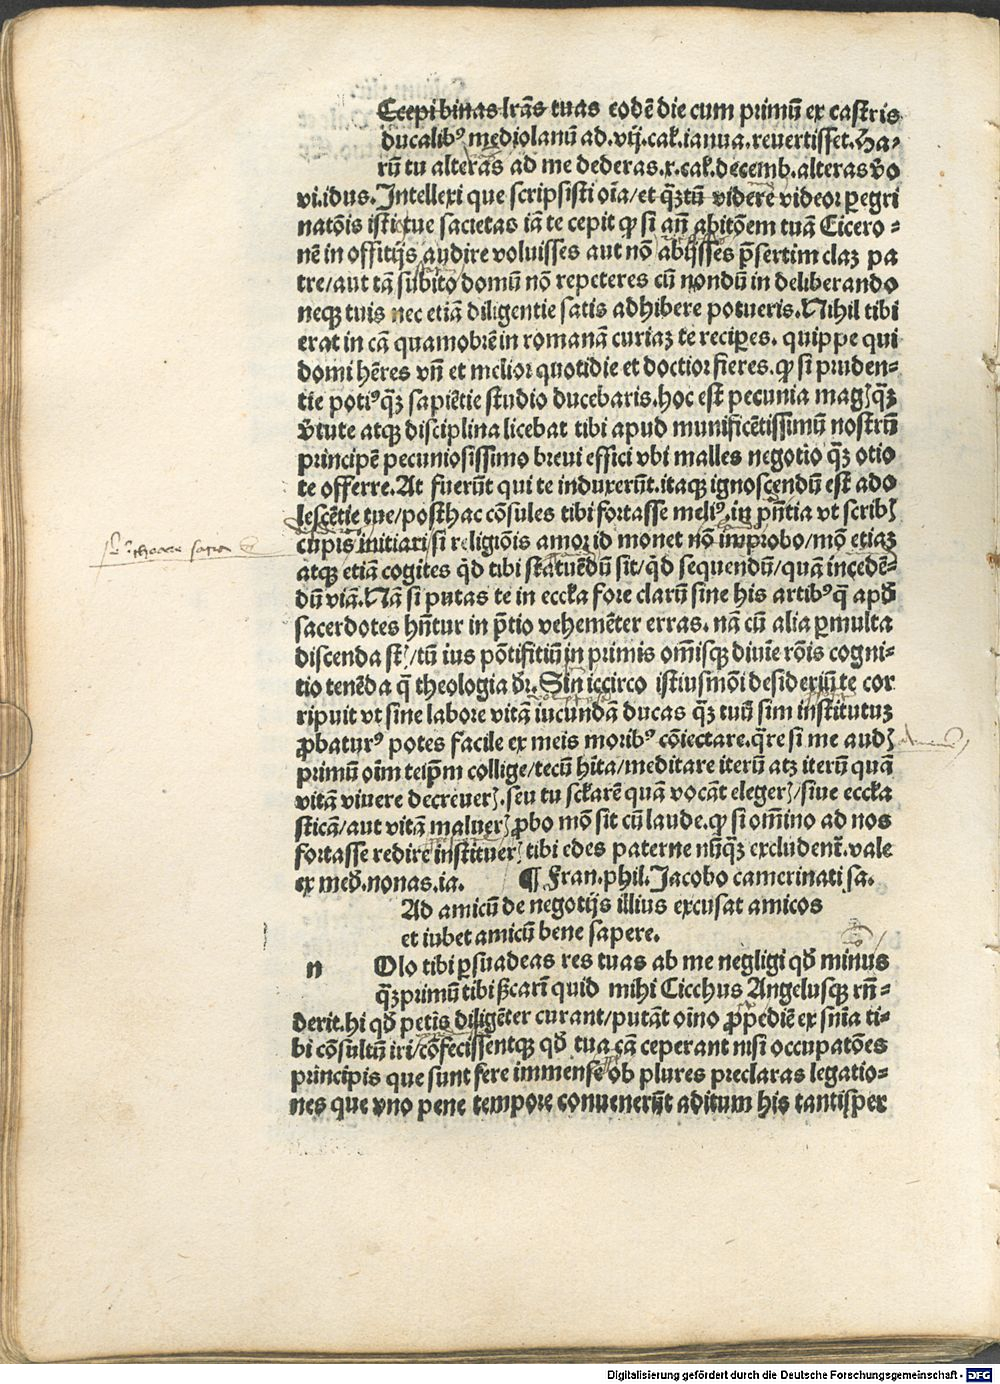 Ccepi binas lr̃as tuas eodẽ die cum primũ ex castris
ducalibꝰ mediolanũ ad .vij. cal̃. ianua. revertisset. Ha-
rũ tu alteras ad me dederas .x. cal̃. decemb. alteras v̊o
vi. idus. Intellexi que scripsisti oĩa/et q̃ꝫtũ videre videor ꝑegri
natõis isti⁹ tue sacietas iã te cepit ꝙ si añ abitõem tuã Cicero-
nẽ in offitijs audire voluisses aut nõ abijsses p̃sertim claꝫ pa
tre/aut tã subito domũ nõ repeteres cũ nondũ in deliberando
neqꝫ tuis nec etiã diligentie satis adhibere potueris. Nihil tibi
erat in cã quamobrẽ in romanã curiaꝫ te reciꝑes. quippe qui
domi hẽres vñ et melior quotidie et doctior fieres. ꝙ si pruden-
tie potiꝰ q̃ꝫ sapiẽtie studio ducebaris. hoc est pecunia magꝭ q̃ꝫ
v̊tute atqꝫ disciplina licebat tibi apud munificẽtissimũ nostrũ
principẽ pecuniosissimo brevi effici vbi malles negotio q̃ꝫ otio
te offerre. At fuerũt qui te induxerũt. itaqꝫ ignoscendũ est ado
lescẽtie tue/posthac cõsules tibi fortasse meliꝰ. in p̃ñtia vt scribꝭ
cupis initiari/si religiõis amor id monet nõ improbo/mõ etiaꝫ
atqꝫ etiã cogites q̃d tibi statuẽdũ sit/q̃d sequendũ/quã incedẽ-
dũ viã. Nã si putas te in eccl̃a fore clarũ sine his artibꝰ q̃ apđ
sacerdotes hñtur in p̃tio vehemẽter erras. nã cũ alia ꝑmulta
discenda st̃/tũ ius põtifitiũ in primis om̃isqꝫ divĩe rõis cogni-
tio tenẽda q̃ theologia dr̃. Sin iccirco istiusmõi desideriũ te cor
ripuit vt sine labore vitã iucundã ducas q̃ꝫ tuũ sim institutuꝫ
ꝓbaturꝰ potes facile ex meis moribꝰ cõiectare. q̃re si me audꝭ
primũ oĩm teip̃m collige/tecũ hĩta/meditare iterũ atꝫ iterũ quã
vitã vivere decreverꝭ. seu tu scl̃arẽ quã vocãt elegerꝭ/sive eccl̃a
sticã/aut vitã maluerꝭ ꝓbo mõ sit cũ laude. ꝙ si om̃ino ad nos
fortasse redire instituerꝭ tibi edes paterne nũq̃ꝫ excludent̃. vale
ex međ. nonas. ia. ¶ Fran. phil. Jacobo camerinati sa.
Ad amicũ de negotijs illius excusat amicos
et iubet amicũ bene sapere.
n Olo tibi ꝑsuadeas res tuas ab me negligi qđ minus
q̃ꝫprimũ tibi ẞcarĩ quid mihi Cicchus Angelusqꝫ rñ-
derit. hi qđ petis diligẽter curant/putãt oĩno ꝓpediẽ ex sñia ti-
bi cõsultũ iri/cõfecissentqꝫ qđ tua cã ceperant nisi occupatões
principis que sunt fere immense ob plures preclaras legatio-
nes que vno pene tempore convenerũt aditum his tantisper
Digitalisierung gefördert durch die Deutsche Forschungsgemeinschaft - DFG